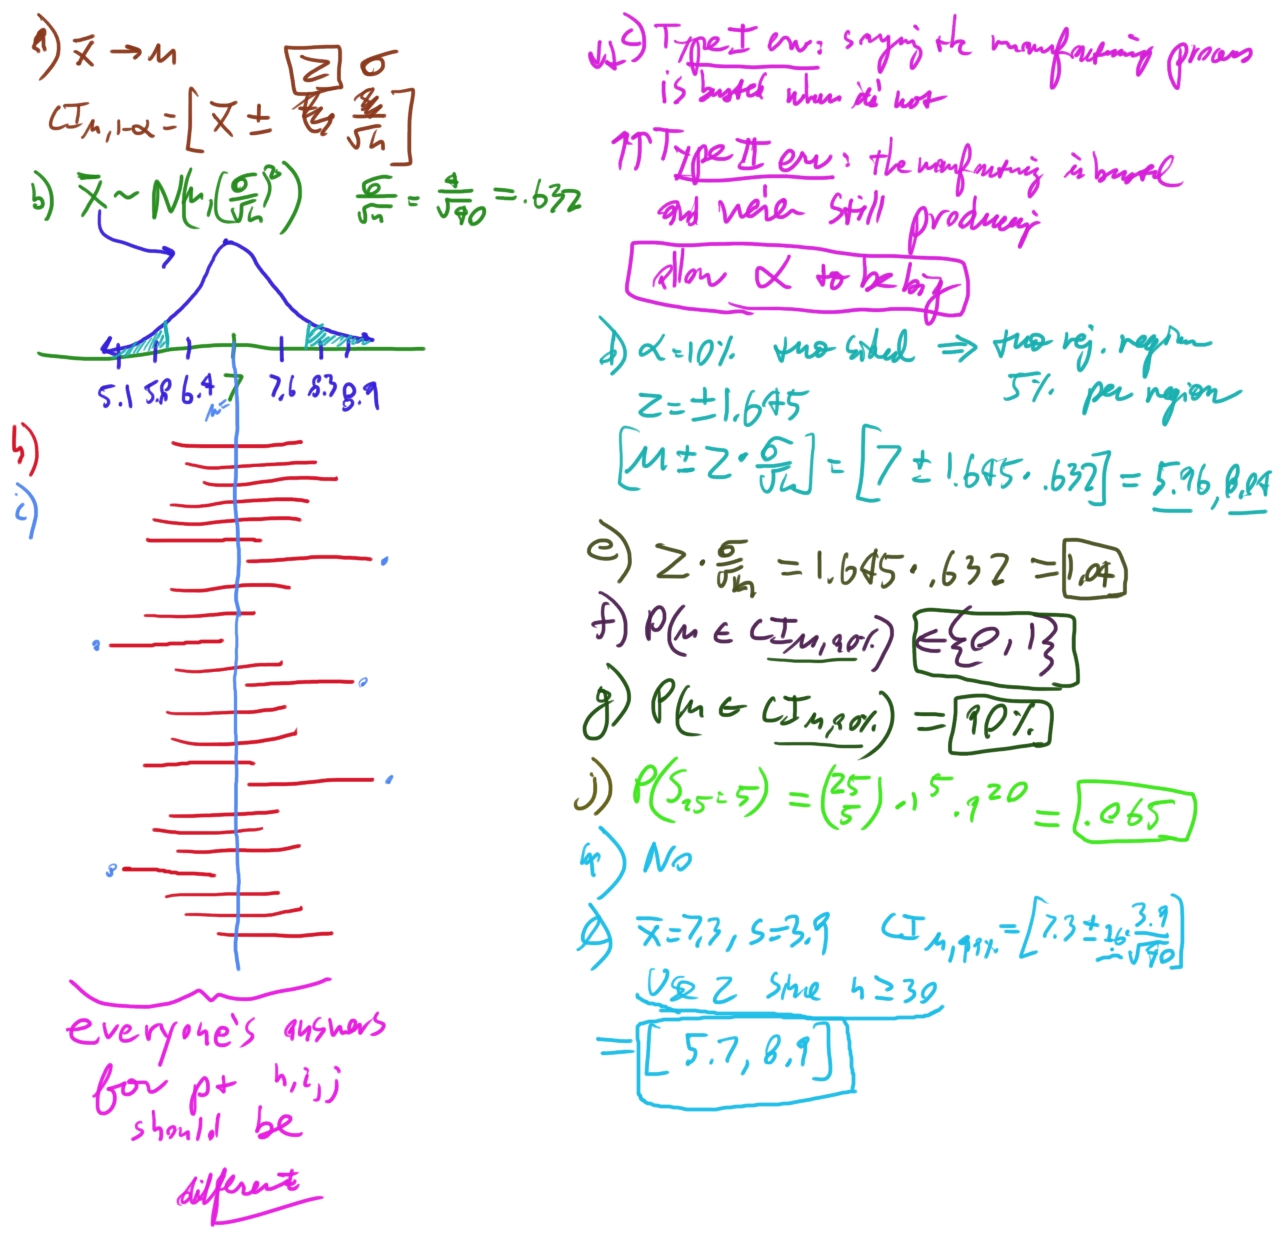 a) x̄ → μ
CI_{μ,1-α} = [ x̄ ± z σ/√n ]
b) X̄ ~ N(μ, (σ/√n)²) σ/√n = 4/√40 = .632
5.1 5.8 6.4 7 7.6 8.3 8.9
μ=
h)
i)
everyone's answers
for pt h,i,j
should be
different
c) Type I err: saying the manufacturing process
is busted when it's not
↓↓
↑↑ Type II err: the manufacturing is busted
and we're still producing
allow α to be big
d) α=10% two sided ⇒ two rej. region
5% per region
z = ±1.645
[μ ± z · σ/√n] = [7 ± 1.645 · .632] = 5.96, 8.04
e) z · σ/√n = 1.645 · .632 = 1.04
f) P(μ ∈ CI_{μ,90%}) ∈ {0, 1}
g) P(μ ∈ CI_{μ,90%}) = 90%
j) P(S_{25} = 5) = (25 5) .1^5 · .9^20 = .065
k) No
l) x̄=7.3, s=3.9 CI_{μ,99%} = [7.3 ± 2.6 · 3.9/√40]
Use z since n ≥ 30
= [5.7, 8.9]